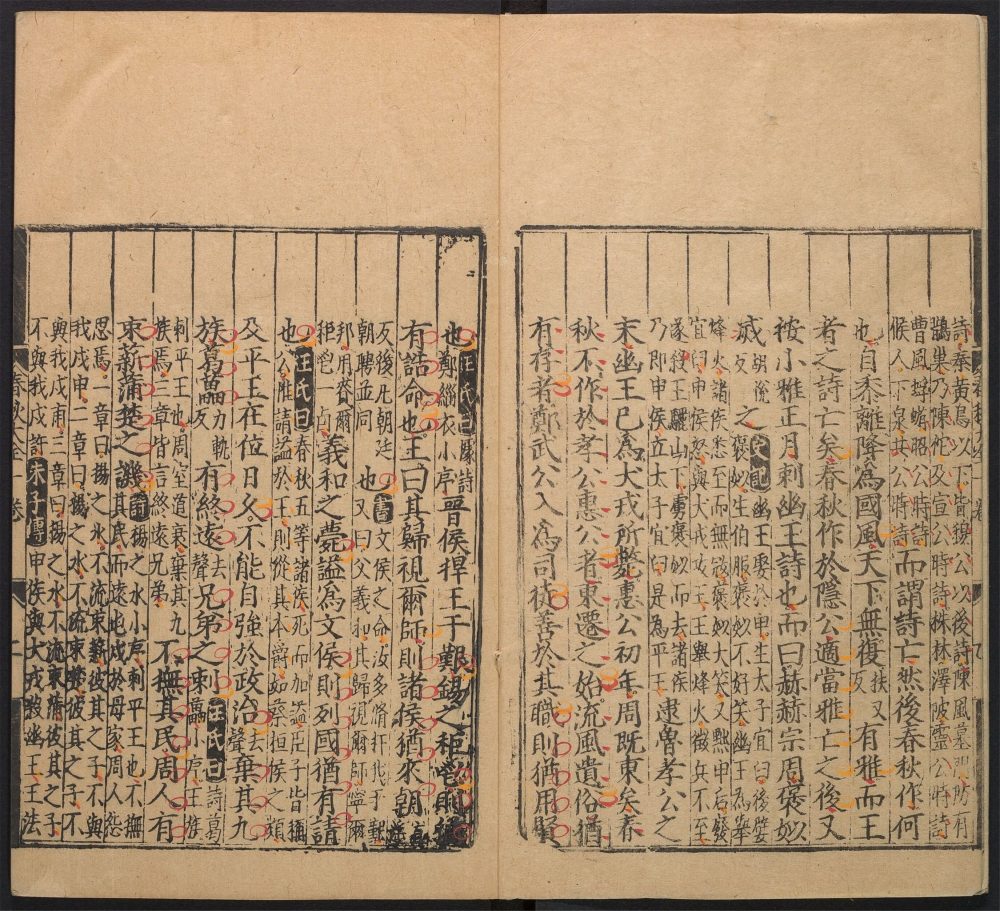 詩秦黃鳥以下皆穆公以後詩陳風墓門防有
鵲巢乃陳佗及宣公時詩株林澤陂靈公時詩
曹風蜉蝣昭公時詩
候人下泉共公時詩
而謂詩亡然後春秋作何
也自黍離降為國風天下無復扶又反有雅而王
者之詩亡矣春秋作於隱公適當雅亡之後又
按小雅正月刺幽王詩也而曰赫赫宗周褒姒
烕胡悅反之史記幽王娶於申生太子宜臼後嬖
褒姒生伯服褒姒不好笑幽王為舉
烽火諸侯悉至而無㓂褒姒大笑又黜申后廢
宜臼申侯怒與犬戎攻王王舉烽火徵兵不至
遂殺王驪山下虜褒姒而去諸侯
乃即申侯立太子宜臼是為平王
逮魯孝公之
末幽王已為犬戎所斃惠公初年周既東矣春
秋不作於孝公惠公者東遷之始流風遺俗猶
有存者鄭武公入為司徒善於其職則猶用賢
也汪氏曰詩鄭緇衣小序晉侯捍王于艱錫之秬鬯則猶
有誥命也王曰其歸視爾師則諸侯猶來朝
反後凡朝廷
朝聘並同
也書文侯之命汝多脩扞我于艱
又曰父義和其歸視爾師寧爾
邦用賚爾
秬鬯一卣
義和之薨諡為文侯則列國猶有請
也汪氏曰春秋五等諸侯死而加諡臣子皆稱
公雖請諡於王則從其本爵如蔡桓侯之類
及平王在位日久不能自強於政治去聲棄其九
族葛藟力軌反有終遠去聲兄弟之刺汪氏曰詩葛
藟小序王族
刺平王也周室道衰棄其九
族焉三章皆言終遠兄弟
不撫其民周人有
束薪蒲楚之譏詩揚之水小序刺平王也不撫
其民而遠屯戍於母家周人怨
思焉一章曰揚之水不流束薪彼其之子不與
我戍申二章曰揚之水不流束楚彼其之子不
與我戍甫三章曰揚之水不流束蒲彼其之子
不與我戍許朱子傳申侯與犬戎殺幽王王法
春秋大全 卷